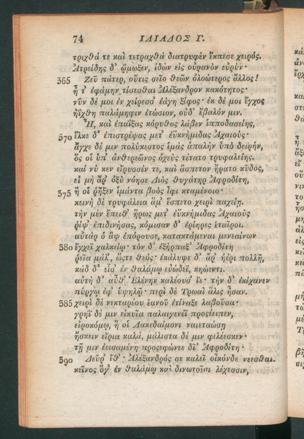 74 ΙΛΙΑΔΟΣ Γ.
τριχθά τε καὶ τετραχθὰ διατρυφὲν ἔκπεσε χειρός.
Ἀτρείδης δ' ᾤμωξεν, ἰδὼν εἰς οὐρανὸν εὐρύν·
365 Ζεῦ πάτερ, οὔτις σεῖο θεῶν ὀλοώτερος ἄλλος!
ἦ τ' ἐφάμην τίσασθαι Ἀλέξανδρον κακότητος·
νῦν δέ μοι ἐν χείρεσσ' ἐάγη ξίφος· ἐκ δέ μοι ἔγχος
ἠΐχθη παλάμηφιν ἐτώσιον, οὐδ' ἔβαλόν μιν.
Ἦ, καὶ ἐπαΐξας κόρυθος λάβεν ἱπποδασείης,
570 ἕλκε δ' ἐπιστρέψας μετ' ἐϋκνήμιδας Ἀχαιούς·
ἄγχε δέ μιν πολύκεστος ἱμὰς ἁπαλὴν ὑπὸ δειρήν,
ὅς οἱ ὑπ' ἀνθερεῶνος ὀχεὺς τέτατο τρυφαλείης.
καί νύ κεν εἴρυσσέν τε, καὶ ἄσπετον ἤρατο κῦδος,
εἰ μὴ ἄρ' ὀξὺ νόησε Διὸς θυγάτηρ Ἀφροδίτη,
575 ἥ οἱ ῥῆξεν ἱμάντα βοὸς ἶφι κταμένοιο·
κεινὴ δὲ τρυφάλεια ἅμ' ἕσπετο χειρὶ παχείῃ.
τὴν μὲν ἔπειθ' ἥρως μετ' ἐϋκνήμιδας Ἀχαιοὺς
ῥῖψ' ἐπιδινήσας, κόμισαν δ' ἐρίηρες ἑταῖροι.
αὐτὰρ ὁ ἂψ ἐπόρουσε, κατακτάμεναι μενεαίνων
580 ἔγχεϊ χαλκείῳ· τὸν δ' ἐξήρπαξ' Ἀφροδίτη
ῥεῖα μάλ', ὥστε θεός· ἐκάλυψε δ' ἄρ' ἠέρι πολλῇ,
κὰδ δ' εἷσ' ἐν θαλάμῳ εὐώδεϊ, κηώεντι.
αὐτὴ δ' αὖθ' Ἑλένην καλέουσ' ἴε· τὴν δ' ἐκίχανεν
πύργῳ ἐφ' ὑψηλῷ· περὶ δὲ Τρωαὶ ἅλις ἦσαν.
585 χειρὶ δὲ νεκταρέου ἑανοῦ ἐτίναξε λαβοῦσα·
γρηῒ δέ μιν εἰκυῖα παλαιγενέϊ προσέειπεν,
εἰροκόμῳ, ἥ οἱ Λακεδαίμονι ναιεταώσῃ
ἤσκειν εἴρια καλά, μάλιστα δέ μιν φιλέεσκεν·
τῇ μιν ἐεισαμένη προσεφώνεε δῖ' Ἀφροδίτη·
590 Δεῦρ' ἴθ'· Ἀλέξανδρός σε καλεῖ οἶκόνδε νέεσθαι.
κεῖνος ὅγ' ἐν θαλάμῳ καὶ δινωτοῖσι λέχεσσιν,